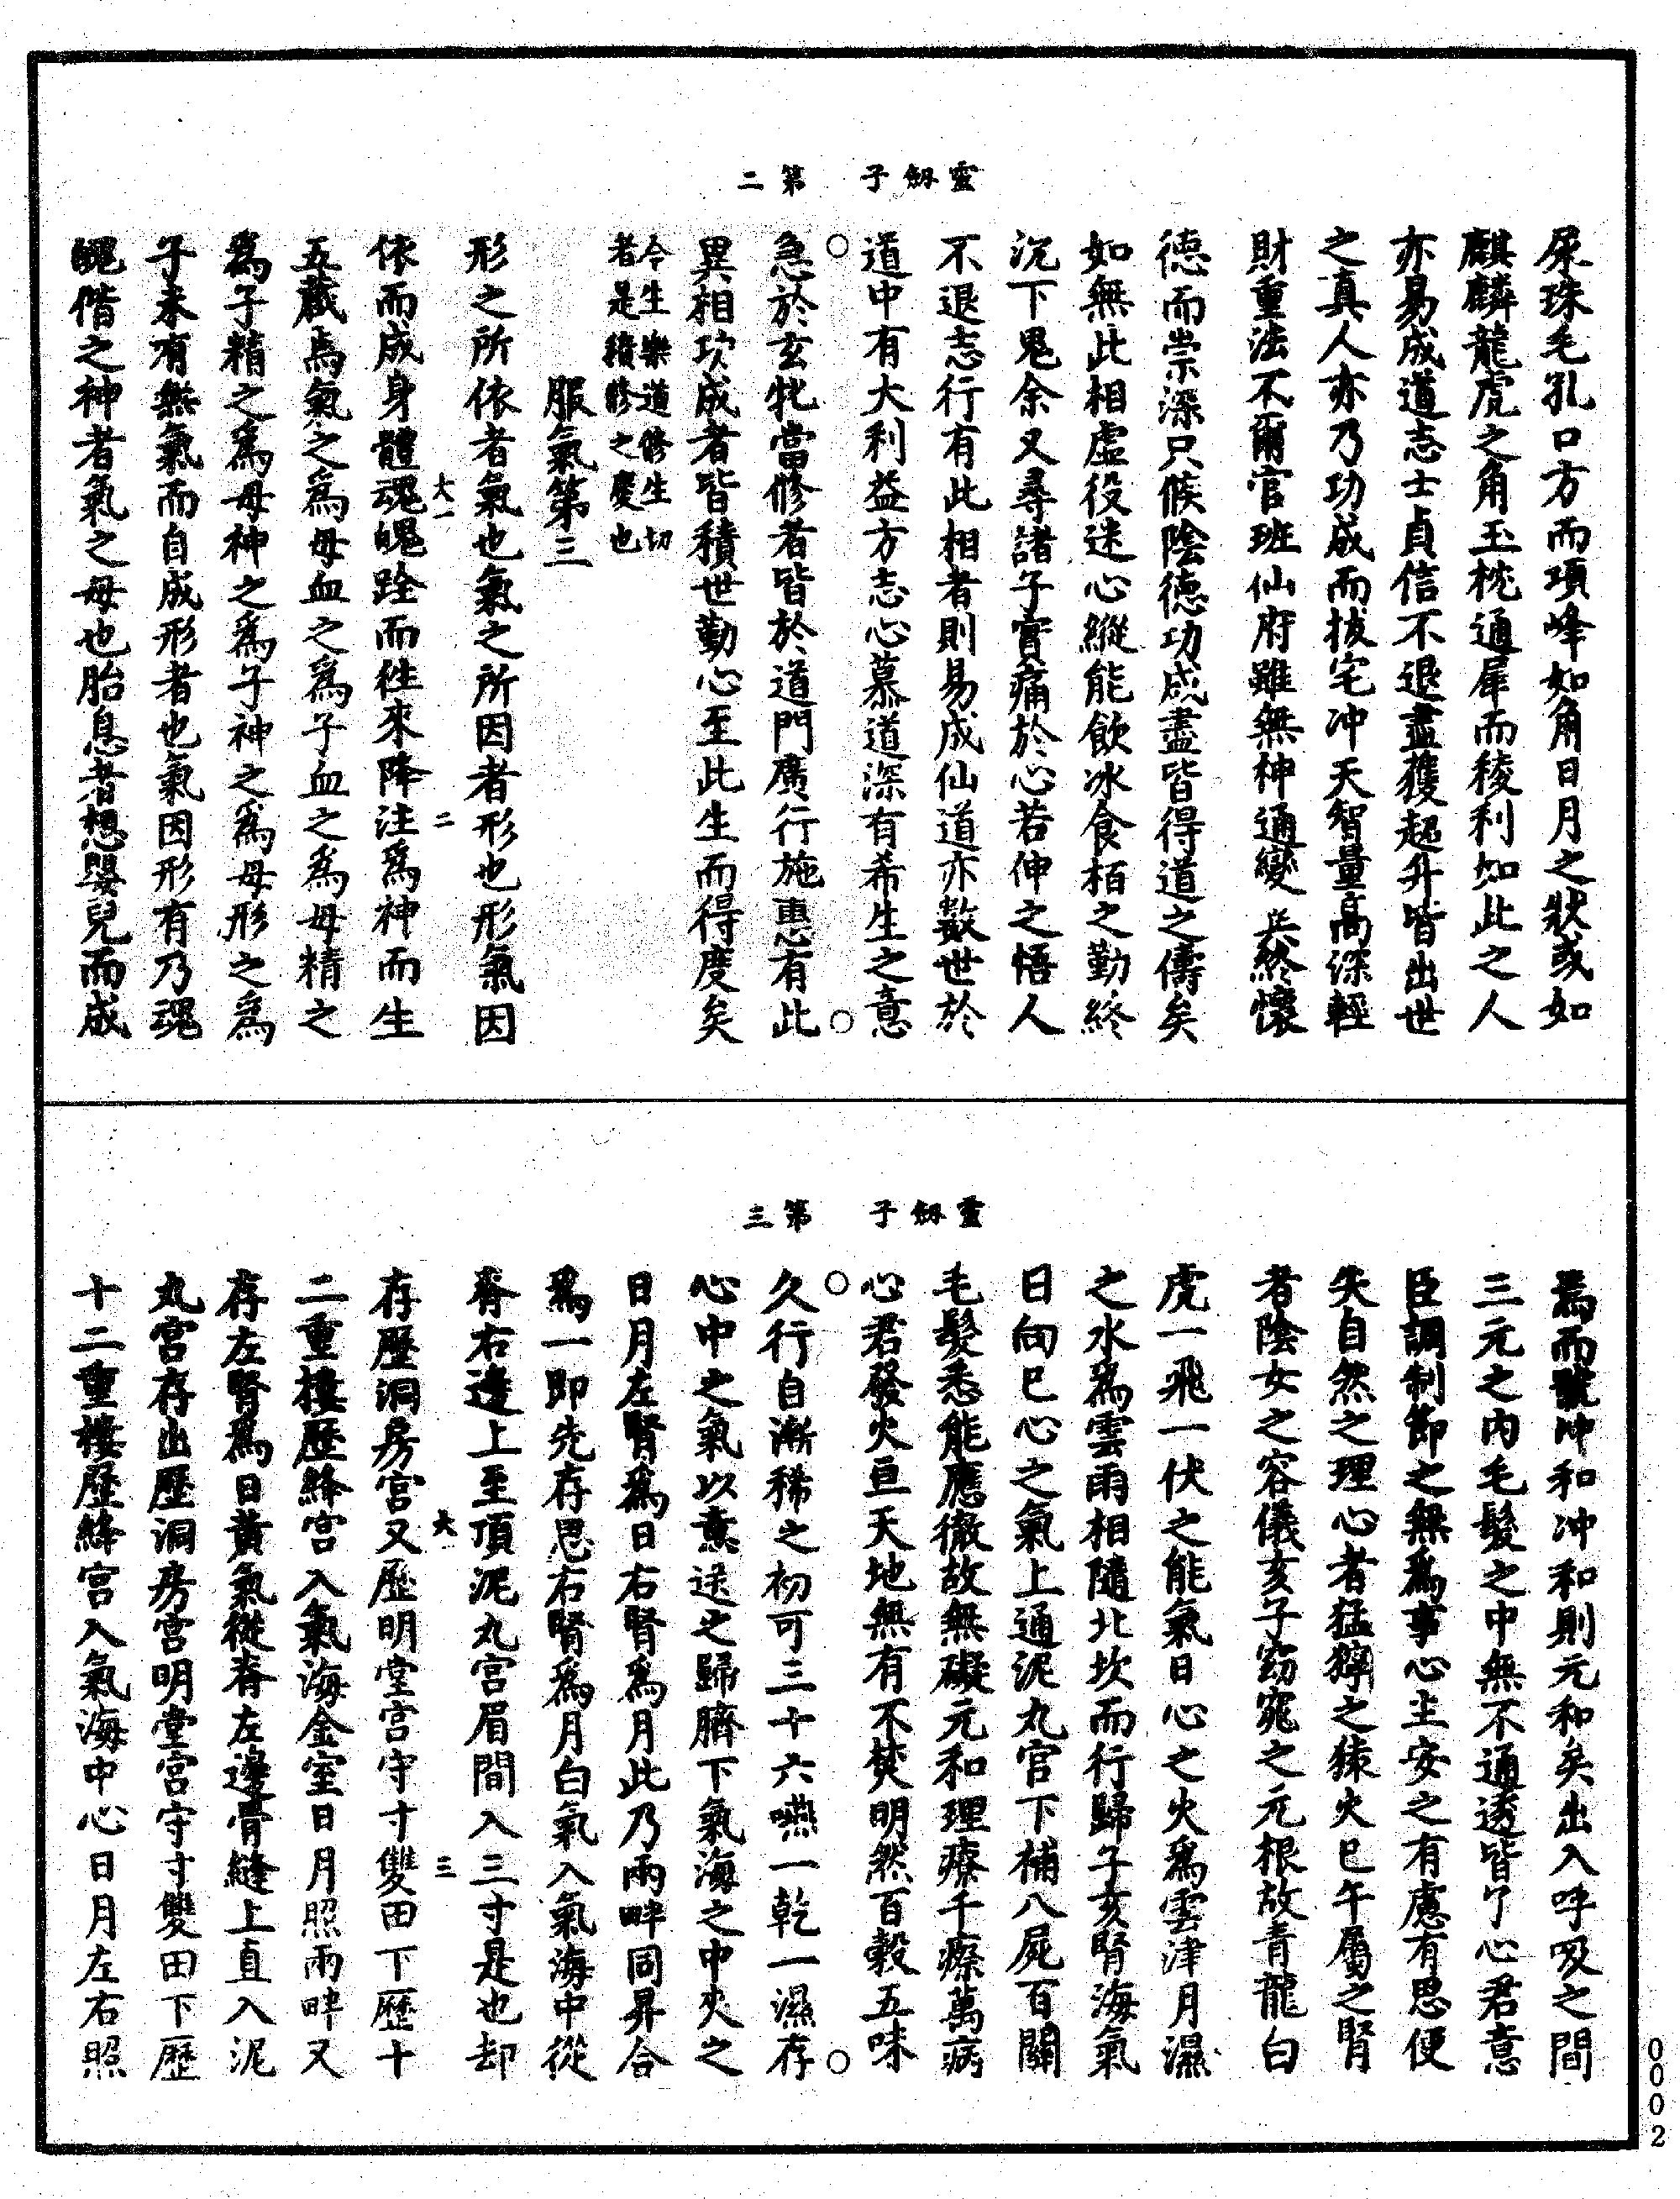 靈劒子　第二
屎珠毛孔口方而項峰如角日月之狀或如
麒麟龍虎之角玉枕通犀而稜利如此之人
亦易成道志士貞信不退盡獲超升皆出世
之真人亦乃功成而拔宅冲天智量高深輕
財重法不爾官班仙府雖無神通變終懷
德而崇深只候陰德功成盡皆得道之儔矣
如無此相虛役迷心縱能飲冰食栢之勤終
沉下鬼余又尋諸子實痛於心若伸之悟人
不退志行有此相者則易成仙道亦數世於
道中有大利益方志心慕道深有希生之意
急於玄牝當修若皆於道門廣行施惠有此
異相攻成者皆積世勤心至此生而得度矣
今生樂道修生切
者是積修之慶也
服氣第三
形之所依者氣也氣之所因者形也形氣因
大一　二
依而成身體魂魄跧而徃來降注爲神而生
五藏焉氣之爲母血之爲子血之爲母精之
爲子精之爲母神之爲子神之爲母形之爲
子未有無氣而自成形者也氣因形有乃魂
魄偕之神者氣之母也胎息者想嬰兒而成
靈劒子　第三
焉而號冲和冲和則元和矣出入呼吸之間
三元之內毛髮之中無不通透皆了心君意
臣調制節之無爲事心主安之有慮有思便
失自然之理心者猛獰之猿火巳午屬之腎
者陰女之容儀亥子窈窕之元根故青龍白
虎一飛一伏之能氣日心之火爲雲津月濕
之水爲雲雨相隨北坎而行歸子亥腎海氣
日向巳心之氣上通泥丸宮下補八屍百關
毛髮悉能應徹故無礙元和理療千瘵萬病
心君發火亘天地無有不焚明然百穀五味
久行自漸稀之初可三十六嚥一乾一濕存
心中之氣以熏送之歸臍下氣海之中夾之
日月左腎爲日右腎爲月此乃兩畔同昇合
爲一即先存思右腎爲月白氣入氣海中從
脊右邊上至頂泥丸宮眉間入三寸是也却
大一　三
存歷洞房宮又歷明堂宮守寸雙田下歷十
二重樓歷絳宮入氣海金室日月照兩畔又
存左腎爲日黃氣從脊左邊骨縫上直入泥
丸宮存出歷洞房宮明堂宮守寸雙田下歷
十二重樓歷絳宮入氣海中心日月左右照
0002